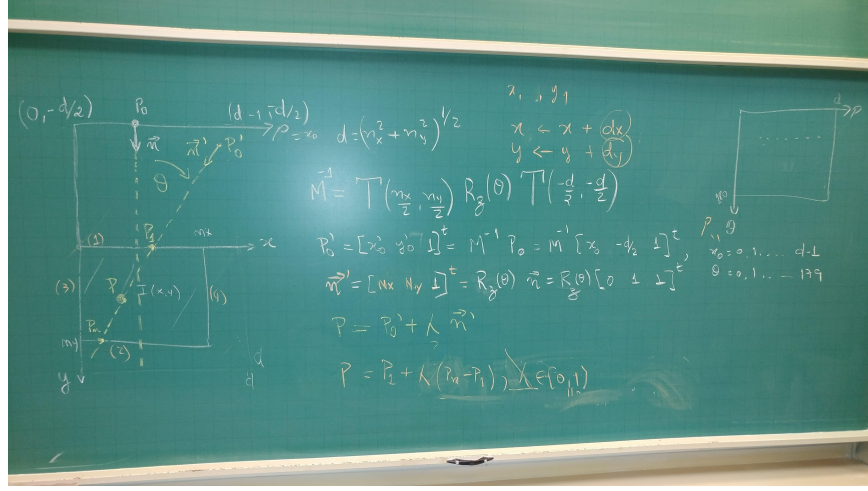 (0,-d/2)
P₀
(d-1,-d/2)
ρ = x₀
n⃗
n⃗'
P₀'
θ
(1)
P₁
nx
x
(3)
P
I(x,y)
(4)
Pₙ
ny
(2)
y
d
d
d = (nx² + ny²)^1/2
x₁, y₁
x ← x + dx
y ← y + dy
M⁻¹ = T(nx/2, ny/2) R_z(θ) T(-d/2, -d/2)
P₀' = [x₀' y₀' 1]ᵗ = M⁻¹ P₀ = M⁻¹ [x₀ -d/2 1]ᵗ,
n⃗' = [Nx Ny 1]ᵗ = R_z(θ) n⃗ = R_z(θ) [0 1 1]ᵗ
P = P₀' + λ n⃗'
P = P₁ + λ (Pₙ - P₁), λ ∈ [0,1)
d
ρ
θ
x₀ = 0,1, ... d-1
θ = 0,1 ... 179